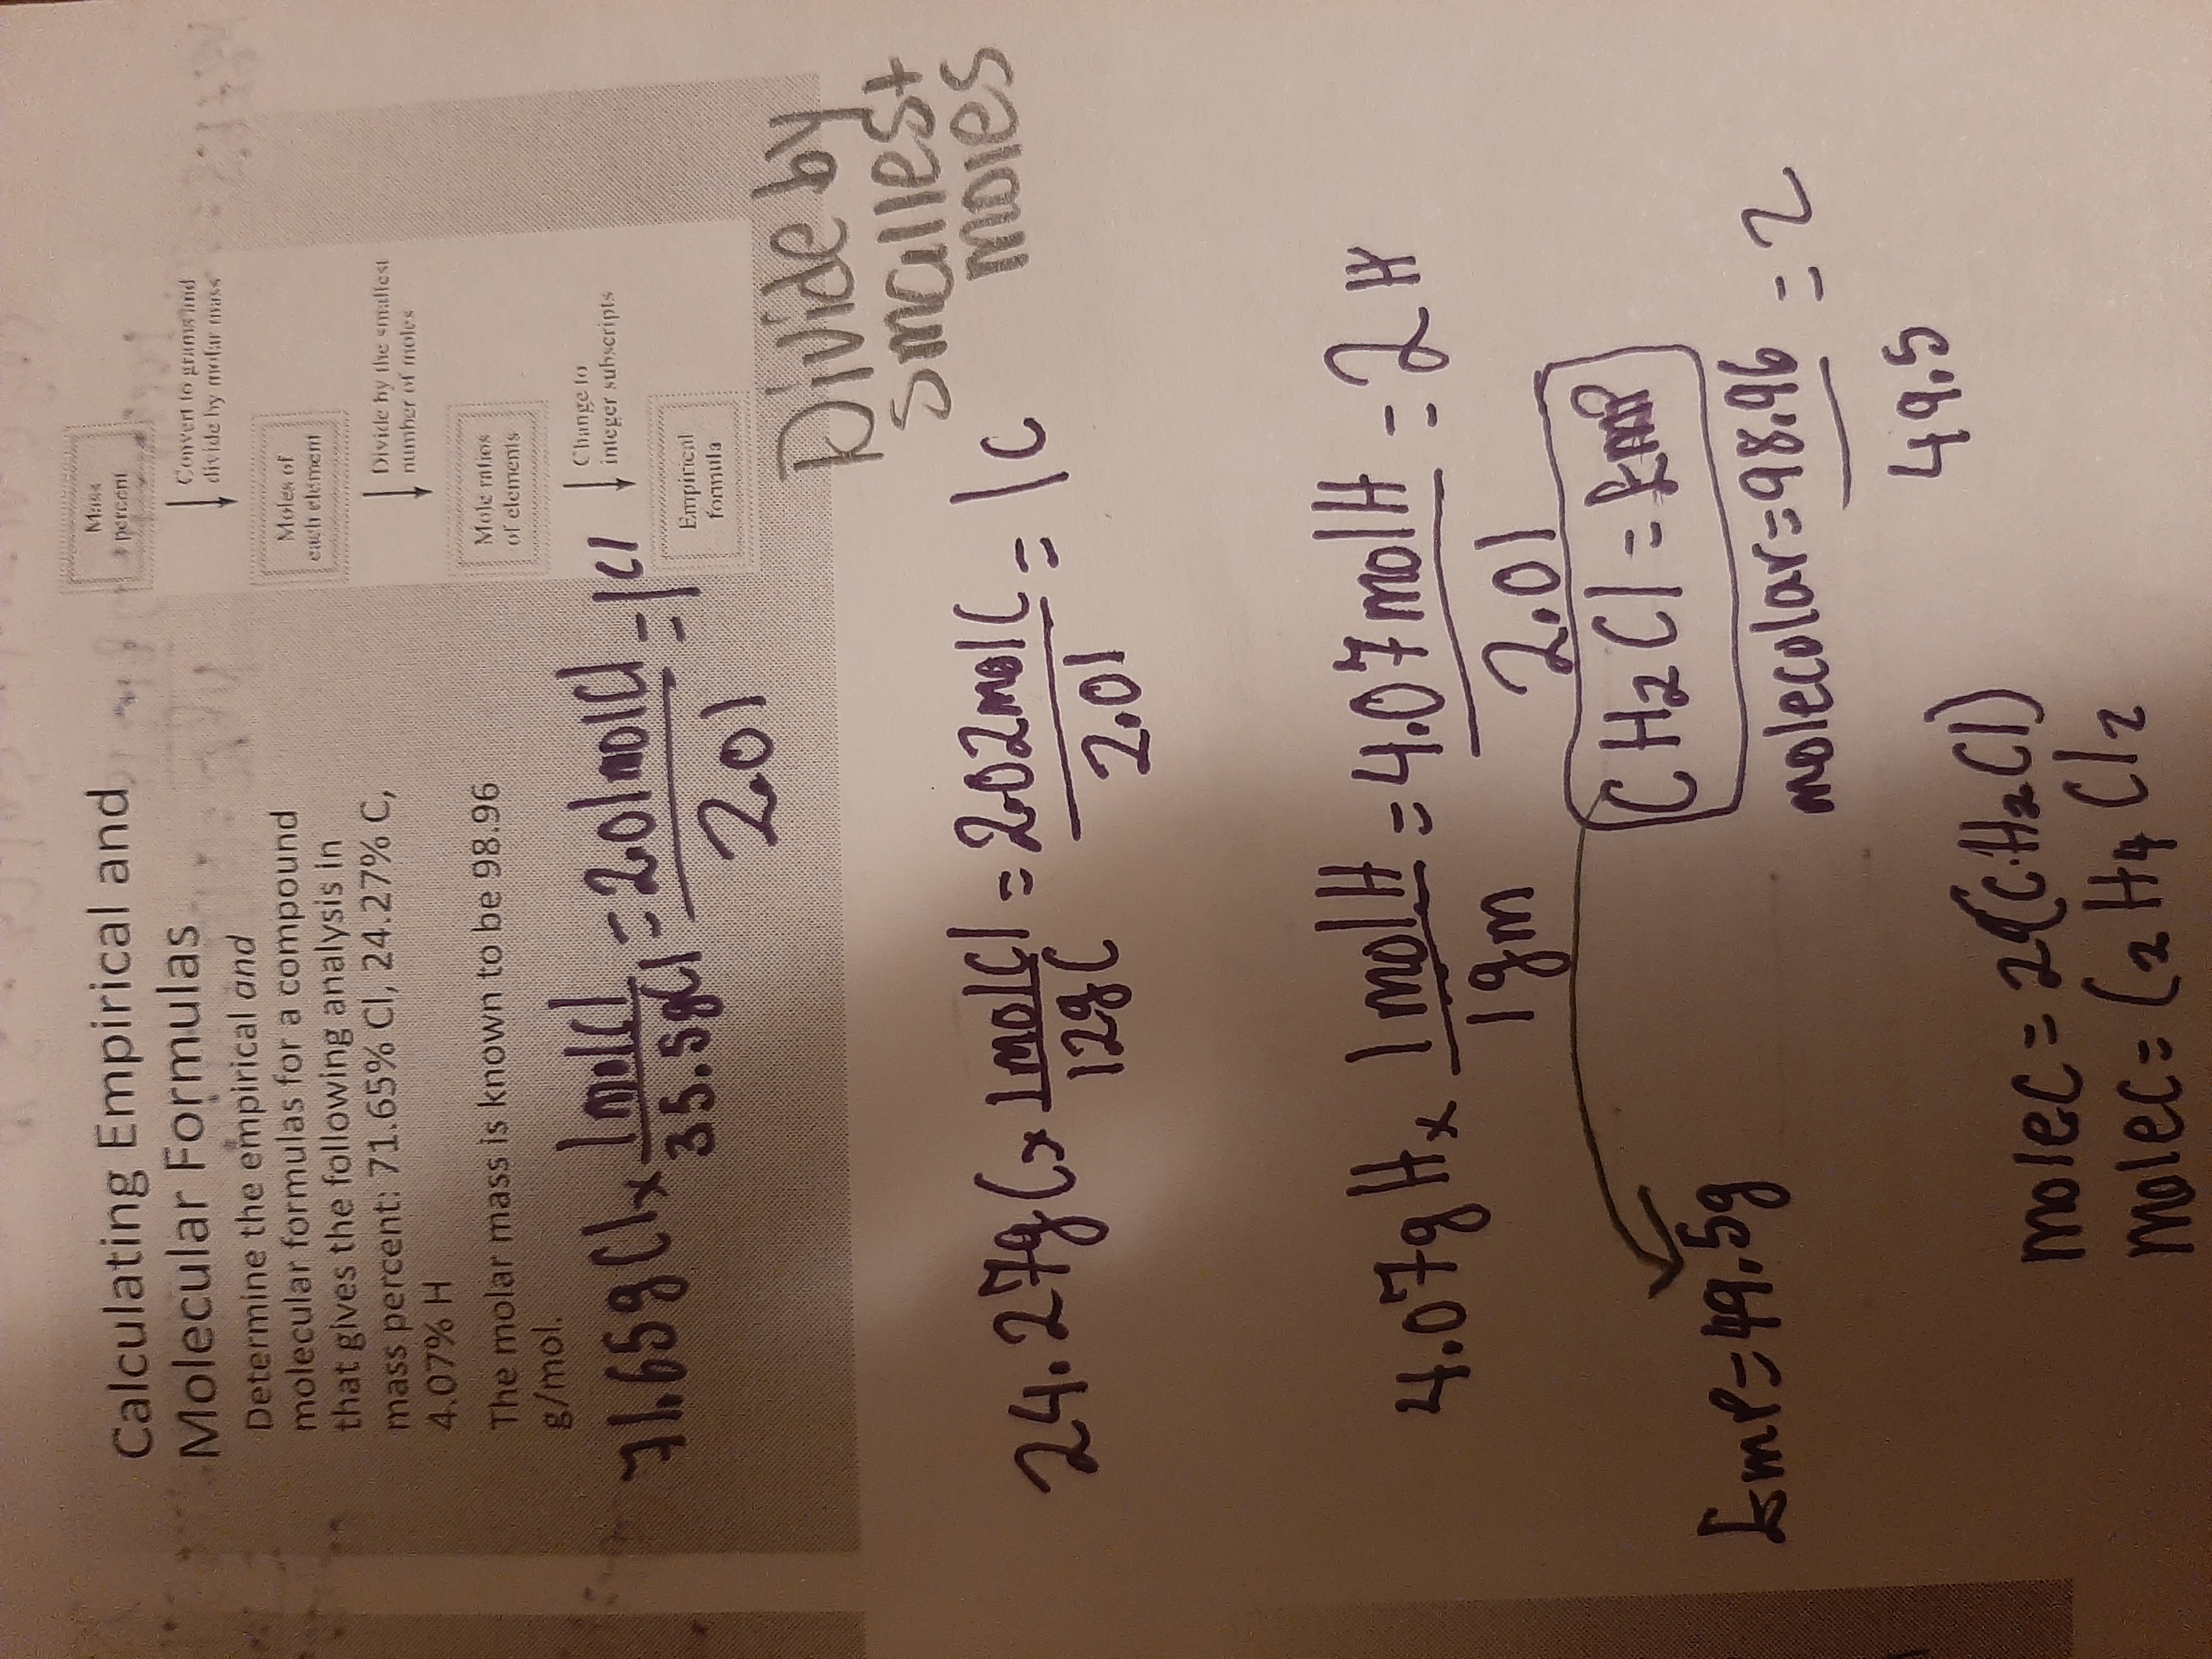 Calculating Empirical and
Molecular Formulas
Determine the empirical and
molecular formulas for a compound
that gives the following analysis in
mass percent: 71.65% Cl, 24.27% C,
4.07% H
The molar mass is known to be 98.96
g/mol.
Mass
percent
Convert to grams and
divide by molar mass
Moles of
each element
Divide by the smallest
number of moles
Mole ratios
of elements
Change to
integer subscripts
Empirical
formula
71.65g Cl x 1molCl = 2.01molCl = 1Cl
35.5gCl 2.01
Divide by
smallest
moles
24.27g C x 1molCl = 2.02molC = 1C
12gC 2.01
4.07g H x 1molH = 4.07molH = 2H
1gm 2.01
CH2Cl = Emp
Emp = 49.5g
molecolar = 98.96 = 2
49.5
molec = 2(CH2Cl)
molec = C2H4Cl2